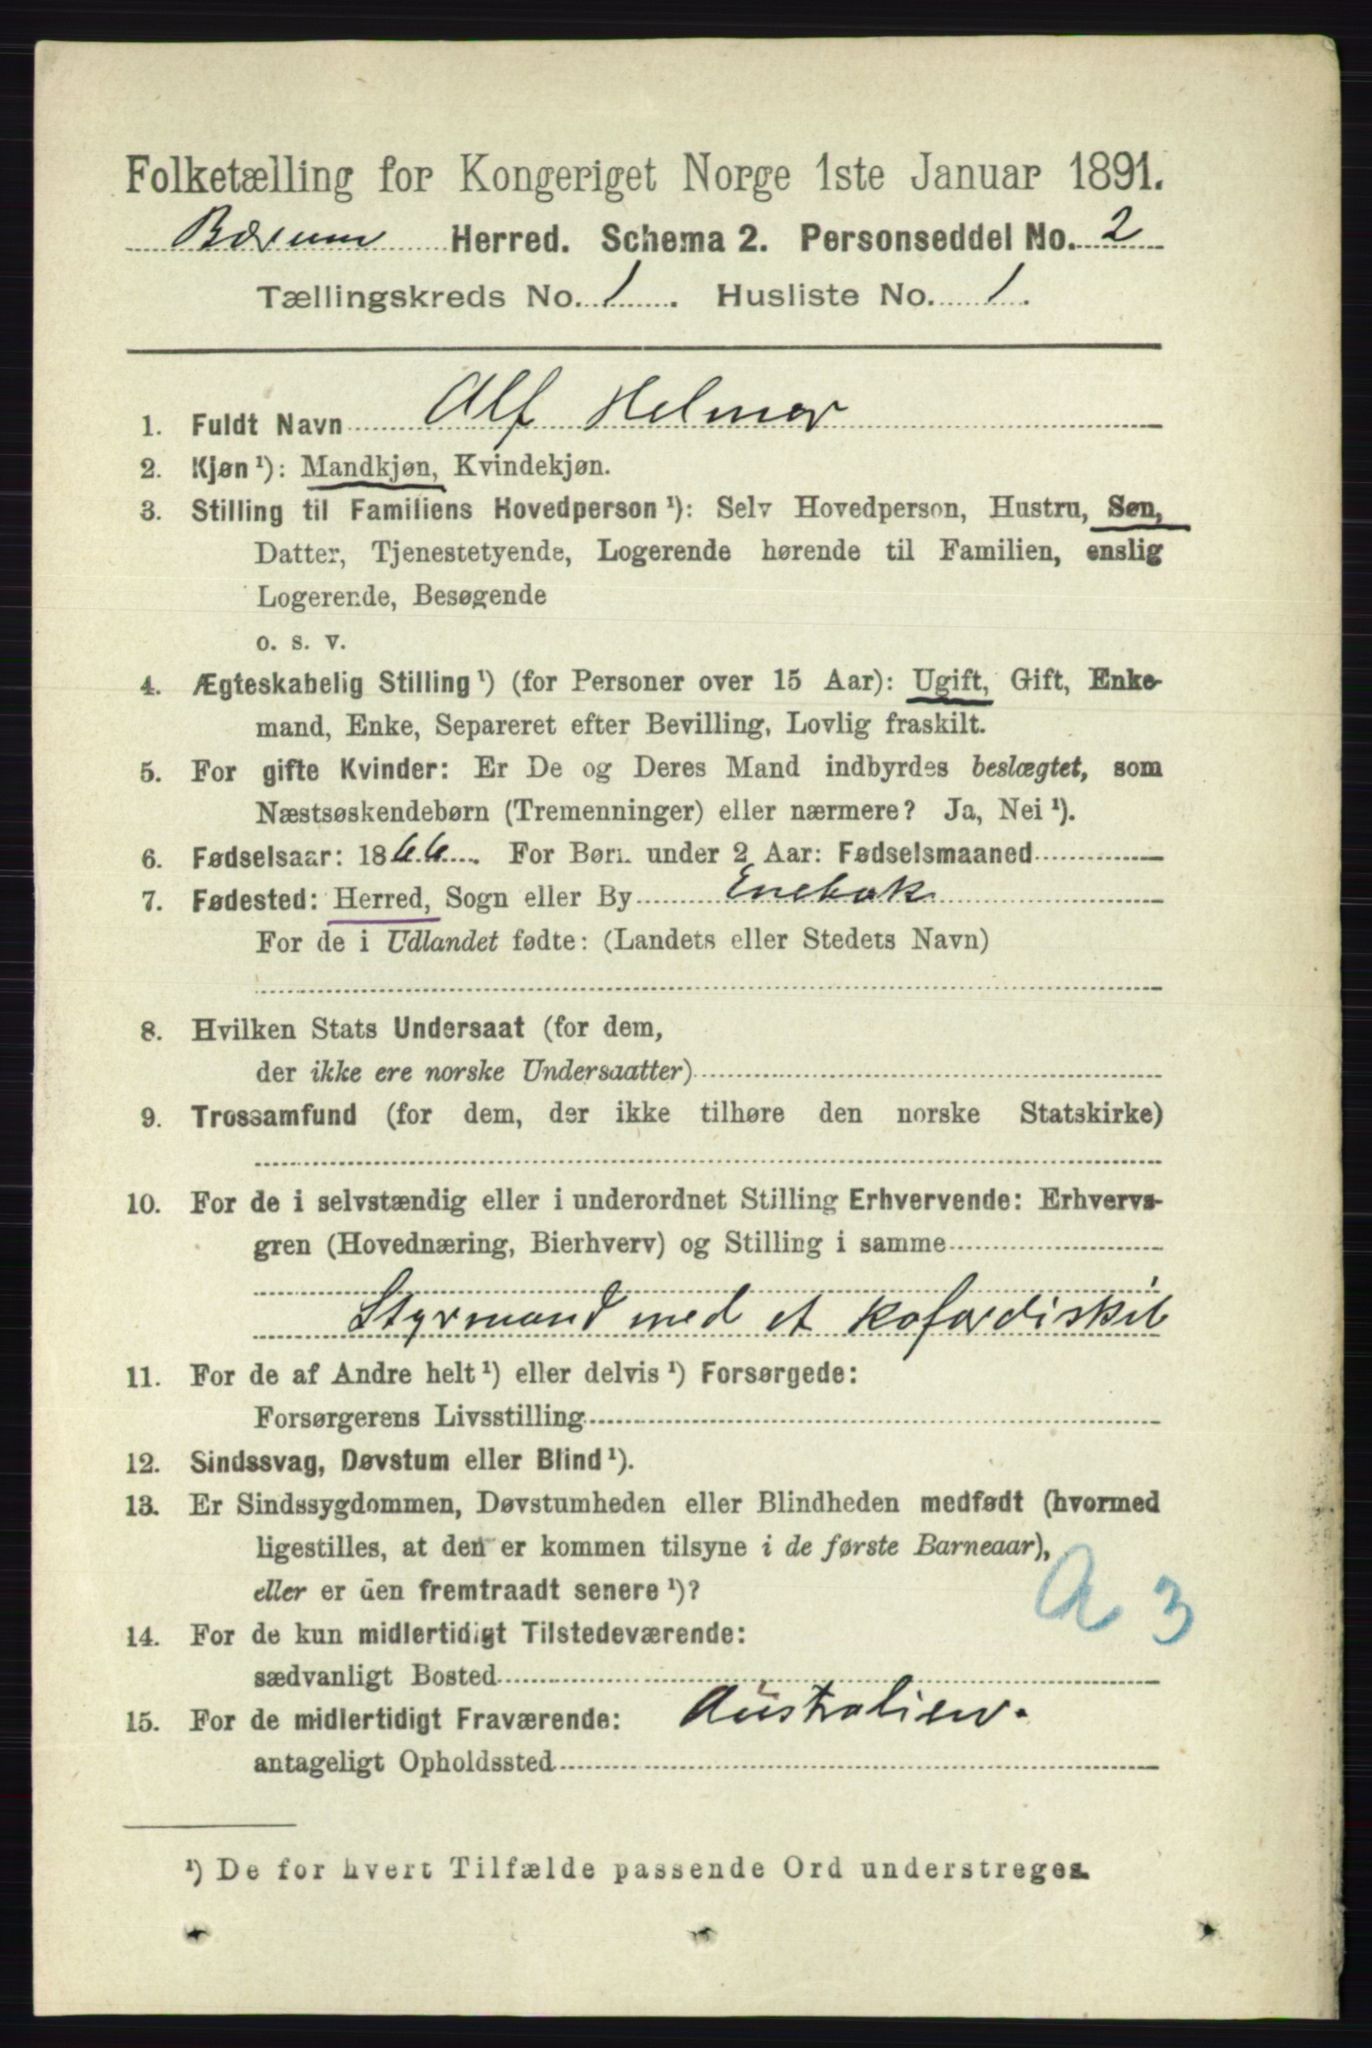 Folketælling for Kongeriget Norge 1ste Januar 1891.
Bærum Herred. Schema 2. Personseddel No. 2
Tællingskreds No. 1. Husliste No. 1.
1. Fuldt Navn Alf Helmer
2. Kjøn ¹): Mandkjøn, Kvindekjøn.
3. Stilling til Familiens Hovedperson ¹): Selv Hovedperson, Hustru, Søn,
Datter, Tjenestetyende, Logerende hørende til Familien, enslig
Logerende, Besøgende
o. s. v.
4. Ægteskabelig Stilling ¹) (for Personer over 15 Aar): Ugift, Gift, Enke-
mand, Enke, Separeret efter Bevilling, Lovlig fraskilt.
5. For gifte Kvinder: Er De og Deres Mand indbyrdes beslægtet, som
Næstsøskendebørn (Tremenninger) eller nærmere? Ja, Nei ¹).
6. Fødselsaar: 1866. For Børn under 2 Aar: Fødselsmaaned
7. Fødested: Herred, Sogn eller By Enebak
For de i Udlandet fødte: (Landets eller Stedets Navn)
8. Hvilken Stats Undersaat (for dem,
der ikke ere norske Undersaatter)
9. Trossamfund (for dem, der ikke tilhøre den norske Statskirke)
10. For de i selvstændig eller i underordnet Stilling Erhvervende: Erhvervs-
gren (Hovednæring, Bierhverv) og Stilling i samme
Styrmand med et kofardiskib
11. For de af Andre helt ¹) eller delvis ¹) Forsørgede:
Forsørgerens Livsstilling
12. Sindssvag, Døvstum eller Blind ¹).
13. Er Sindssygdommen, Døvstumheden eller Blindheden medfødt (hvormed
ligestilles, at den er kommen tilsyne i de første Barneaar),
eller er den fremtraadt senere ¹)?
A 3
14. For de kun midlertidigt Tilstedeværende:
sædvanligt Bosted
15. For de midlertidigt Fraværende: Australien.
antageligt Opholdssted
¹) De for hvert Tilfælde passende Ord understreges.